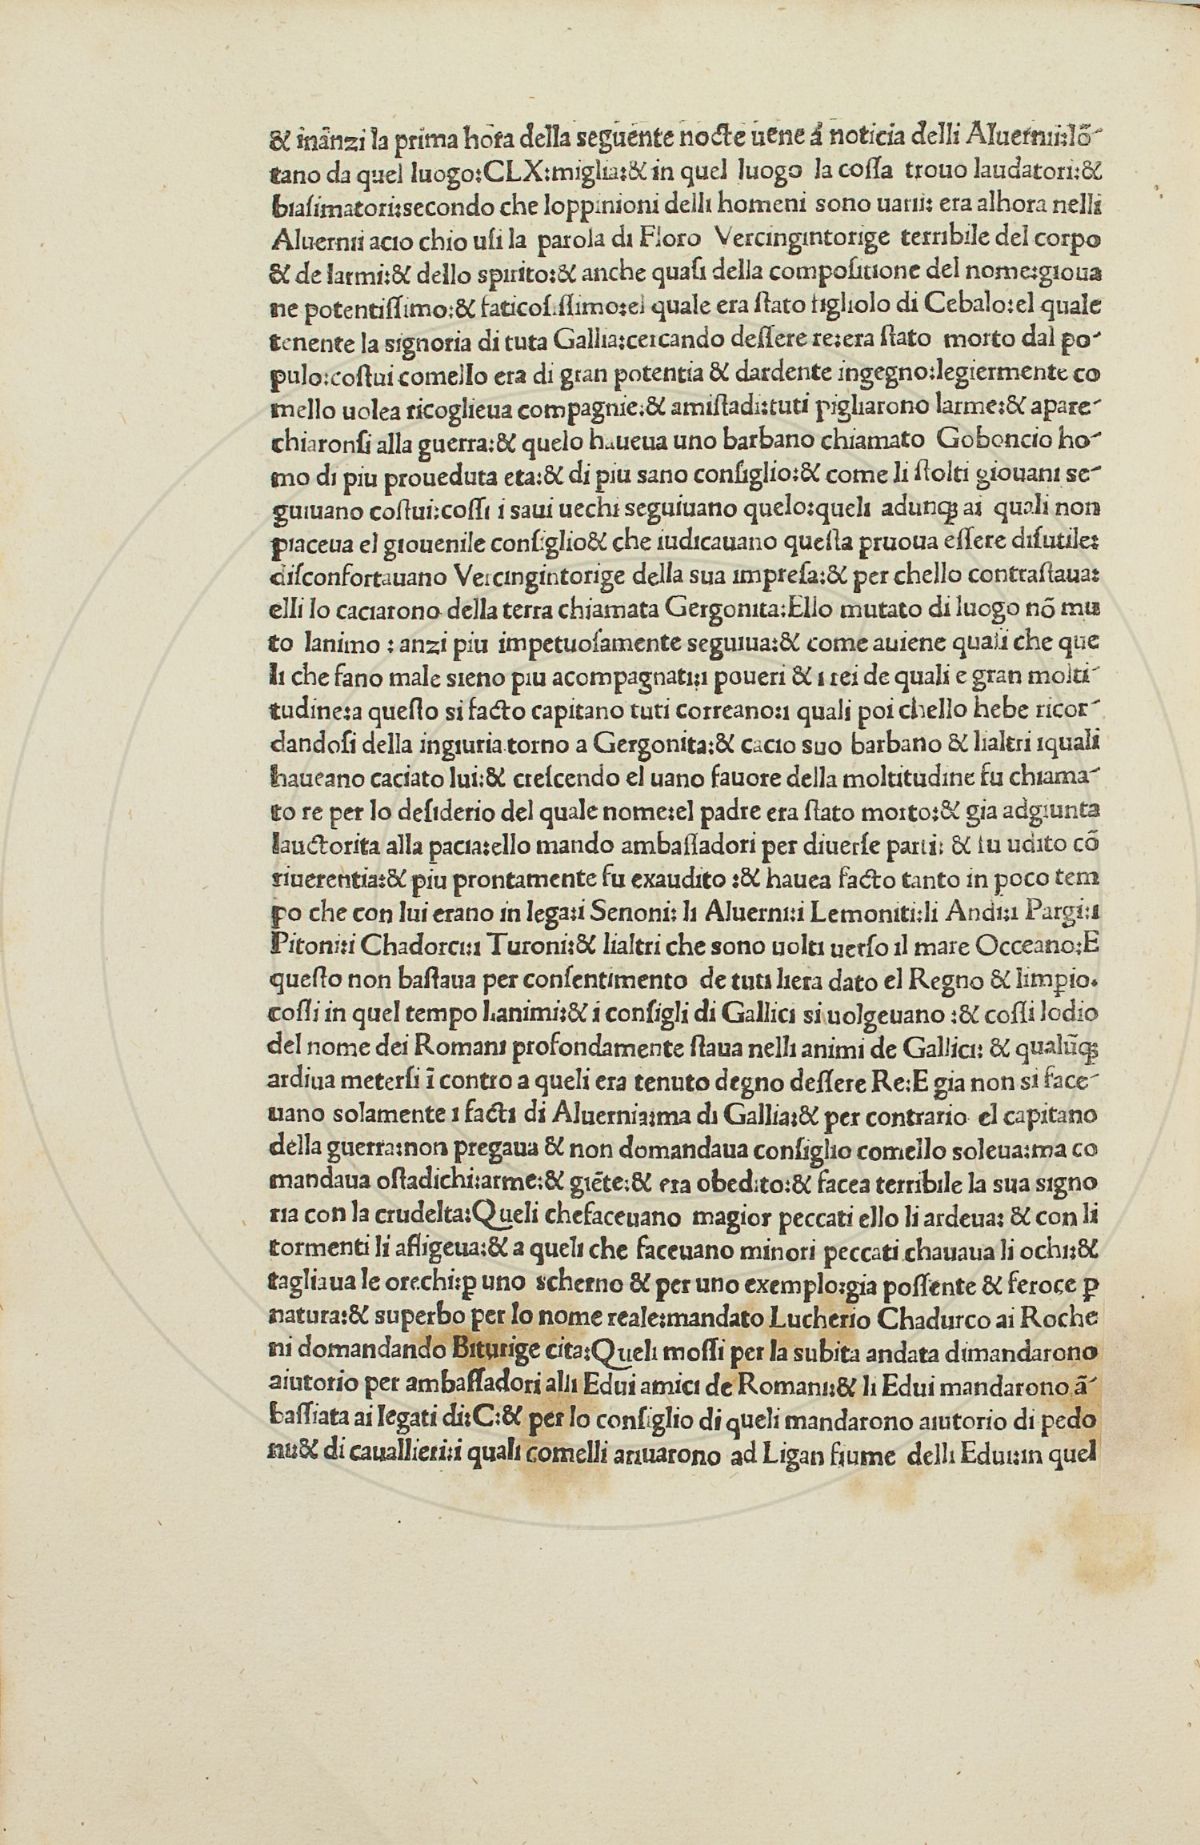 & inãnzi la prima hora della seguente nocte uene á noticia delli Aluernii:lõ-
tano da quel luogo:CLX:miglia:& in quel luogo la cossa trouo laudatori:&
biasimatori:secondo che loppinioni delli homeni sono uarii: era alhora nelli
Aluernii acio chio usi la parola di Floro Vercingintorige terribile del corpo
& de larmi:& dello spirito:& anche quasi della compositione del nome:gioua
ne potentissimo:& faticosissimo:el quale era stato figliolo di Cebalo:el quale
tenente la signoria di tuta Gallia:cercando dessere re:era stato morto dal po-
pulo:costui comello era di gran potentia & dardente ingegno:legiermente co
mello uolea ricoglieua compagnie:& amistadi:tuti pigliarono larme:& apare-
chiaronsi alla guerra:& quelo haueua uno barbano chiamato Goboncio ho-
mo di piu proueduta eta:& di piu sano consiglio:& come li stolti giouani se-
guiuano costui:cossi i saui uechi seguiuano quelo:queli adunqꝫ ai quali non
piaceua el giouenile consiglio& che iudicauano questa pruoua essere disutile:
disconfortauano Vercingintorige della sua impresa:& per chello contrastaua:
elli lo caciarono della terra chiamata Gergonita:Ello mutato di luogo nõ mu
to lanimo : anzi piu impetuosamente seguiua:& come auiene quali che que
li che fano male sieno piu acompagnati:i poueri & i rei de quali e gran molti-
tudine:a questo si facto capitano tuti correano:i quali poi chello hebe ricor-
dandosi della ingiuria torno a Gergonita:& cacio suo barbano & lialtri iquali
haueano caciato lui:& crescendo el uano fauore della moltitudine fu chiama-
to re per lo desiderio del quale nome:el padre era stato morto:& gia adgiunta
lauctorita alla pacia:ello mando ambassadori per diuerse parti: & fu udito cõ
riuerentia:& piu prontamente fu exaudito :& hauea facto tanto in poco tem
po che con lui erano in lega:i Senoni: li Aluerni:i Lemoniti:li Andi:i Pargi:i
Pitoni:i Chadorci:i Turoni:& lialtri che sono uolti uerso il mare Occeano:E
questo non bastaua per consentimento de tuti liera dato el Regno & limꝑio.
cossi in quel tempo lanimi:& i consigli di Gallici si uolgeuano :& cossi lodio
del nome dei Romani profondamente staua nelli animi de Gallici: & qualũqꝫ
ardiua metersi ĩ contro a queli era tenuto degno dessere Re:E gia non si face-
uano solamente i facti di Aluernia:ma di Gallia:& per contrario el capitano
della guerra:non pregaua & non domandaua consiglio comello soleua:ma co
mandaua ostadichi:arme:& giẽte:& era obedito:& facea terribile la sua signo
ria con la crudelta:Queli chefaceuano magior peccati ello li ardeua: & con li
tormenti li afligeua:& a queli che faceuano minori peccati chauaua li ochi:&
tagliaua le orechi:ꝑ uno scherno & per uno exemplo:gia possente & feroce ꝑ
natura:& superbo per lo nome reale:mandato Lucherio Chadurco ai Roche
ni domandando Biturige cita:Queli mossi per la subita andata dimandarono
aiutorio per ambassadori alli Edui amici de Romani:& li Edui mandarono ã-
bassiata ai legati di:C:& per lo consiglio di queli mandarono aiutorio di pedo
ni:& di cauallieri:i quali comelli ariuarono ad Ligan fiume delli Edui:in quel